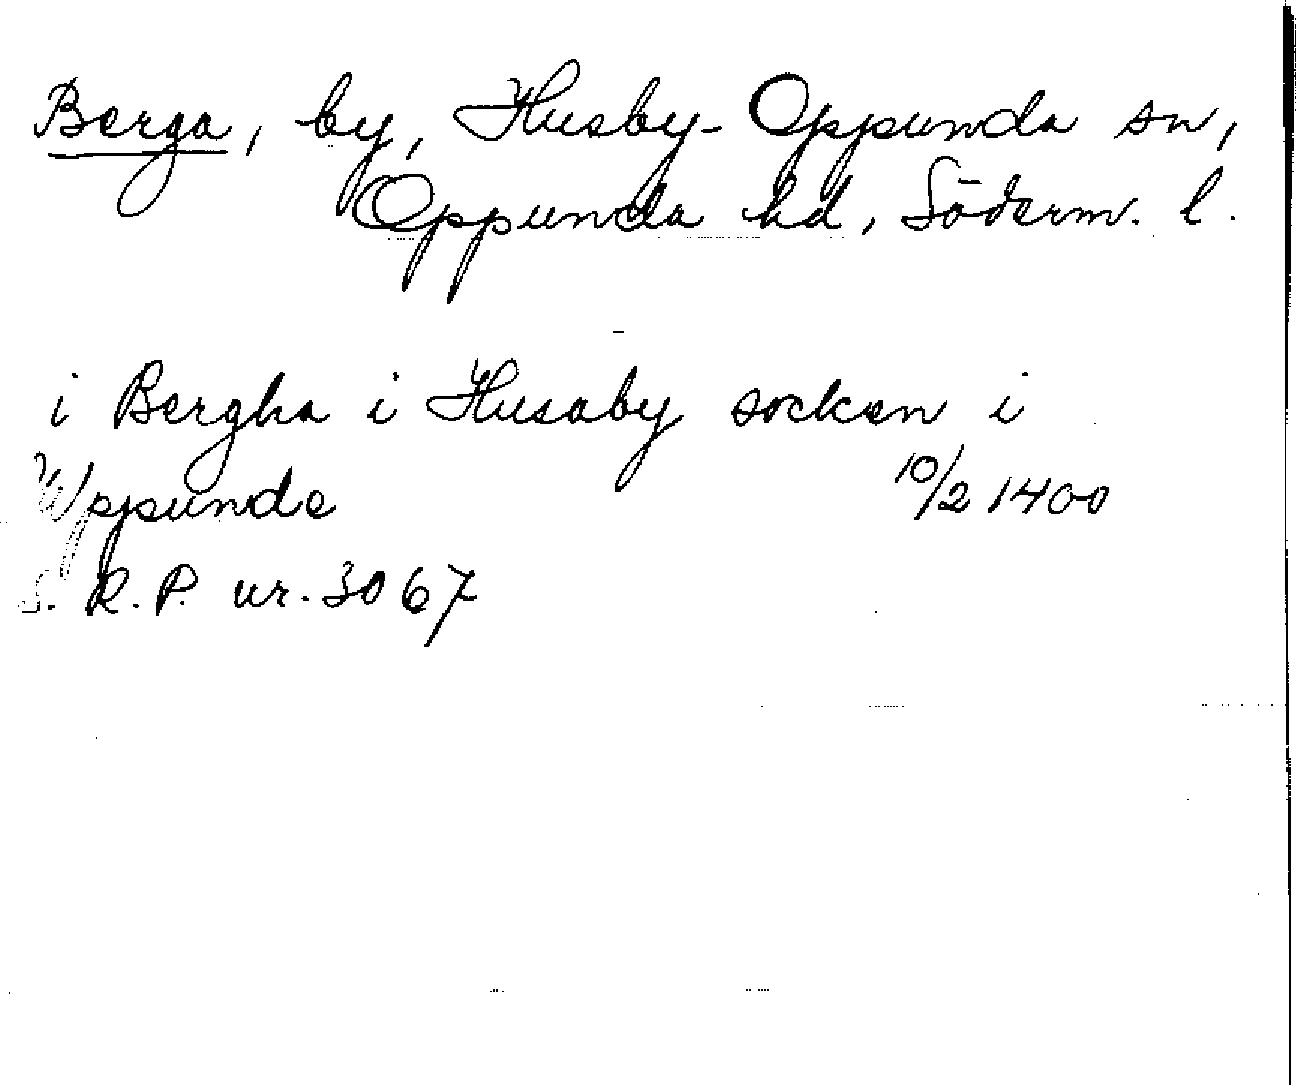 Berga, by, Husby-Oppunda sn,
Oppunda hd, Söderm. l.
i Bergha i Husaby socken i
Wppunde 10/2 1400
S. R. P. nr. 3067